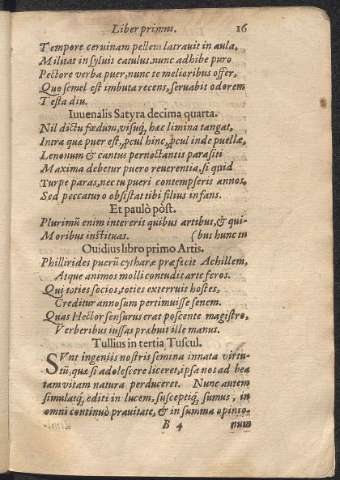 Liber primus. 16
Tempore ceruinam pellem latrauit in aula,
Militat in syluis catulus. nunc adhibe puro
Pectore verba puer, nunc te melioribus offer.
Quo semel est imbuta recens, seruabit odorem
Testa diu.
Iuuenalis Satyra decima quarta.
Nil dictu fœdum, visuq́, hæc limina tangat,
Intra quæ puer est, ꝓcul hinc, ꝓcul inde puellæ,
Lenonum & cantus pernoctantis parasiti
Maxima debetur puero reuerentia, si quid
Turpe paras, nec tu pueri contempseris annos,
Sed peccaturo obsistat tibi filius infans.
Et paulò pòst.
Plurimū enim intererit quibus artibus, & qui-
Moribus instituas. (bus hunc tu
Ouidius libro primo Artis.
Phillirides puerū cytharæ præfecit Achillem,
Atque animos molli contudit arte feros.
Qui toties socios, toties exterruit hostes,
Creditur annosum pertimuisse senem.
Quas Hector sensurus erat poscente magistro,
Verberibus iussas præbuit ille manus.
Tullius in tertia Tuscul.
SVnt ingeniis nostris semina innata virtu-
tū, quæ si adolescere liceret, ipsa nos ad bea
tam vitam natura perduceret. Nunc autem
simulatq́, editi in lucem, susceptiq́, sumus, in
omni continuò prauitate, & in summa opinio-
B 4 num